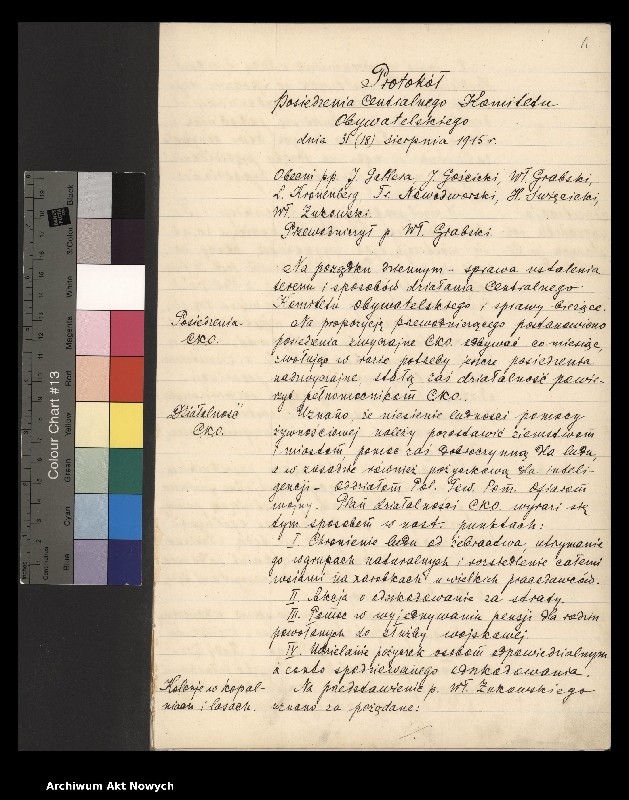 Protokół
Posiedzenia Centralnego Komitetu
Obywatelskiego
dnia 31 (18) sierpnia 1915 r.
Obecni pp. J. Gościcki, Wł. Grabski,
L. Kronenberg, Fr. Nowodworski, H. Święcicki,
Wł. Żukowski.
Przewodniczył p. Wł. Grabski.
Na porządku dziennym - sprawa ustalenia
terenu i sposobów działania Centralnego
Komitetu Obywatelskiego i sprawy bieżące.
Posiedzenia
CKO.
Na propozycję przewodniczącego postanowiono
posiedzenia zwyczajne CKO. odbywać co miesiąc,
w razie potrzeby, jeszcze posiedzenia
nadzwyczajne, stałą zaś działalność powie-
rzyć pełnomocnikom CKO.
Działalność
CKO.
Uznano, że niesienie ludności pomocy
żywnościowej należy pozostawić ziemstwom
i miastom, pomoc zaś dobroczynną dla ludu,
a w zasadzie również pożyczkową dla inteli-
gencji - oddziałom Pol. Tow. Pom. Ofiarom
wojny. Plan działalności CKO wyrazi się
tym sposobem w nast. punktach:
I. Chronienie ludu od żebractwa, utrzymanie
go w grupach naturalnych i rozsiedlenie całemi
wsiami na zarobkach u wielkich pracodawców.
II. Akcja o odszkodowanie za straty.
III. Pomoc w wyjednywaniu pensji dla rodzin
powołanych do służby wojskowej.
IV. Udzielanie pożyczek osobom odpowiedzialnym
à conto spodziewanego odszkodowania.
Kolonje w kopal-
niach i lasach.
Na przedstawienie p. Wł. Żukowskiego
uznano za pożądane:
Colour Chart #13
Blue
Cyan
Green
Yellow
Red
Magenta
White
3/Color
Black
Inches
Centimetres
Archiwum Akt Nowych